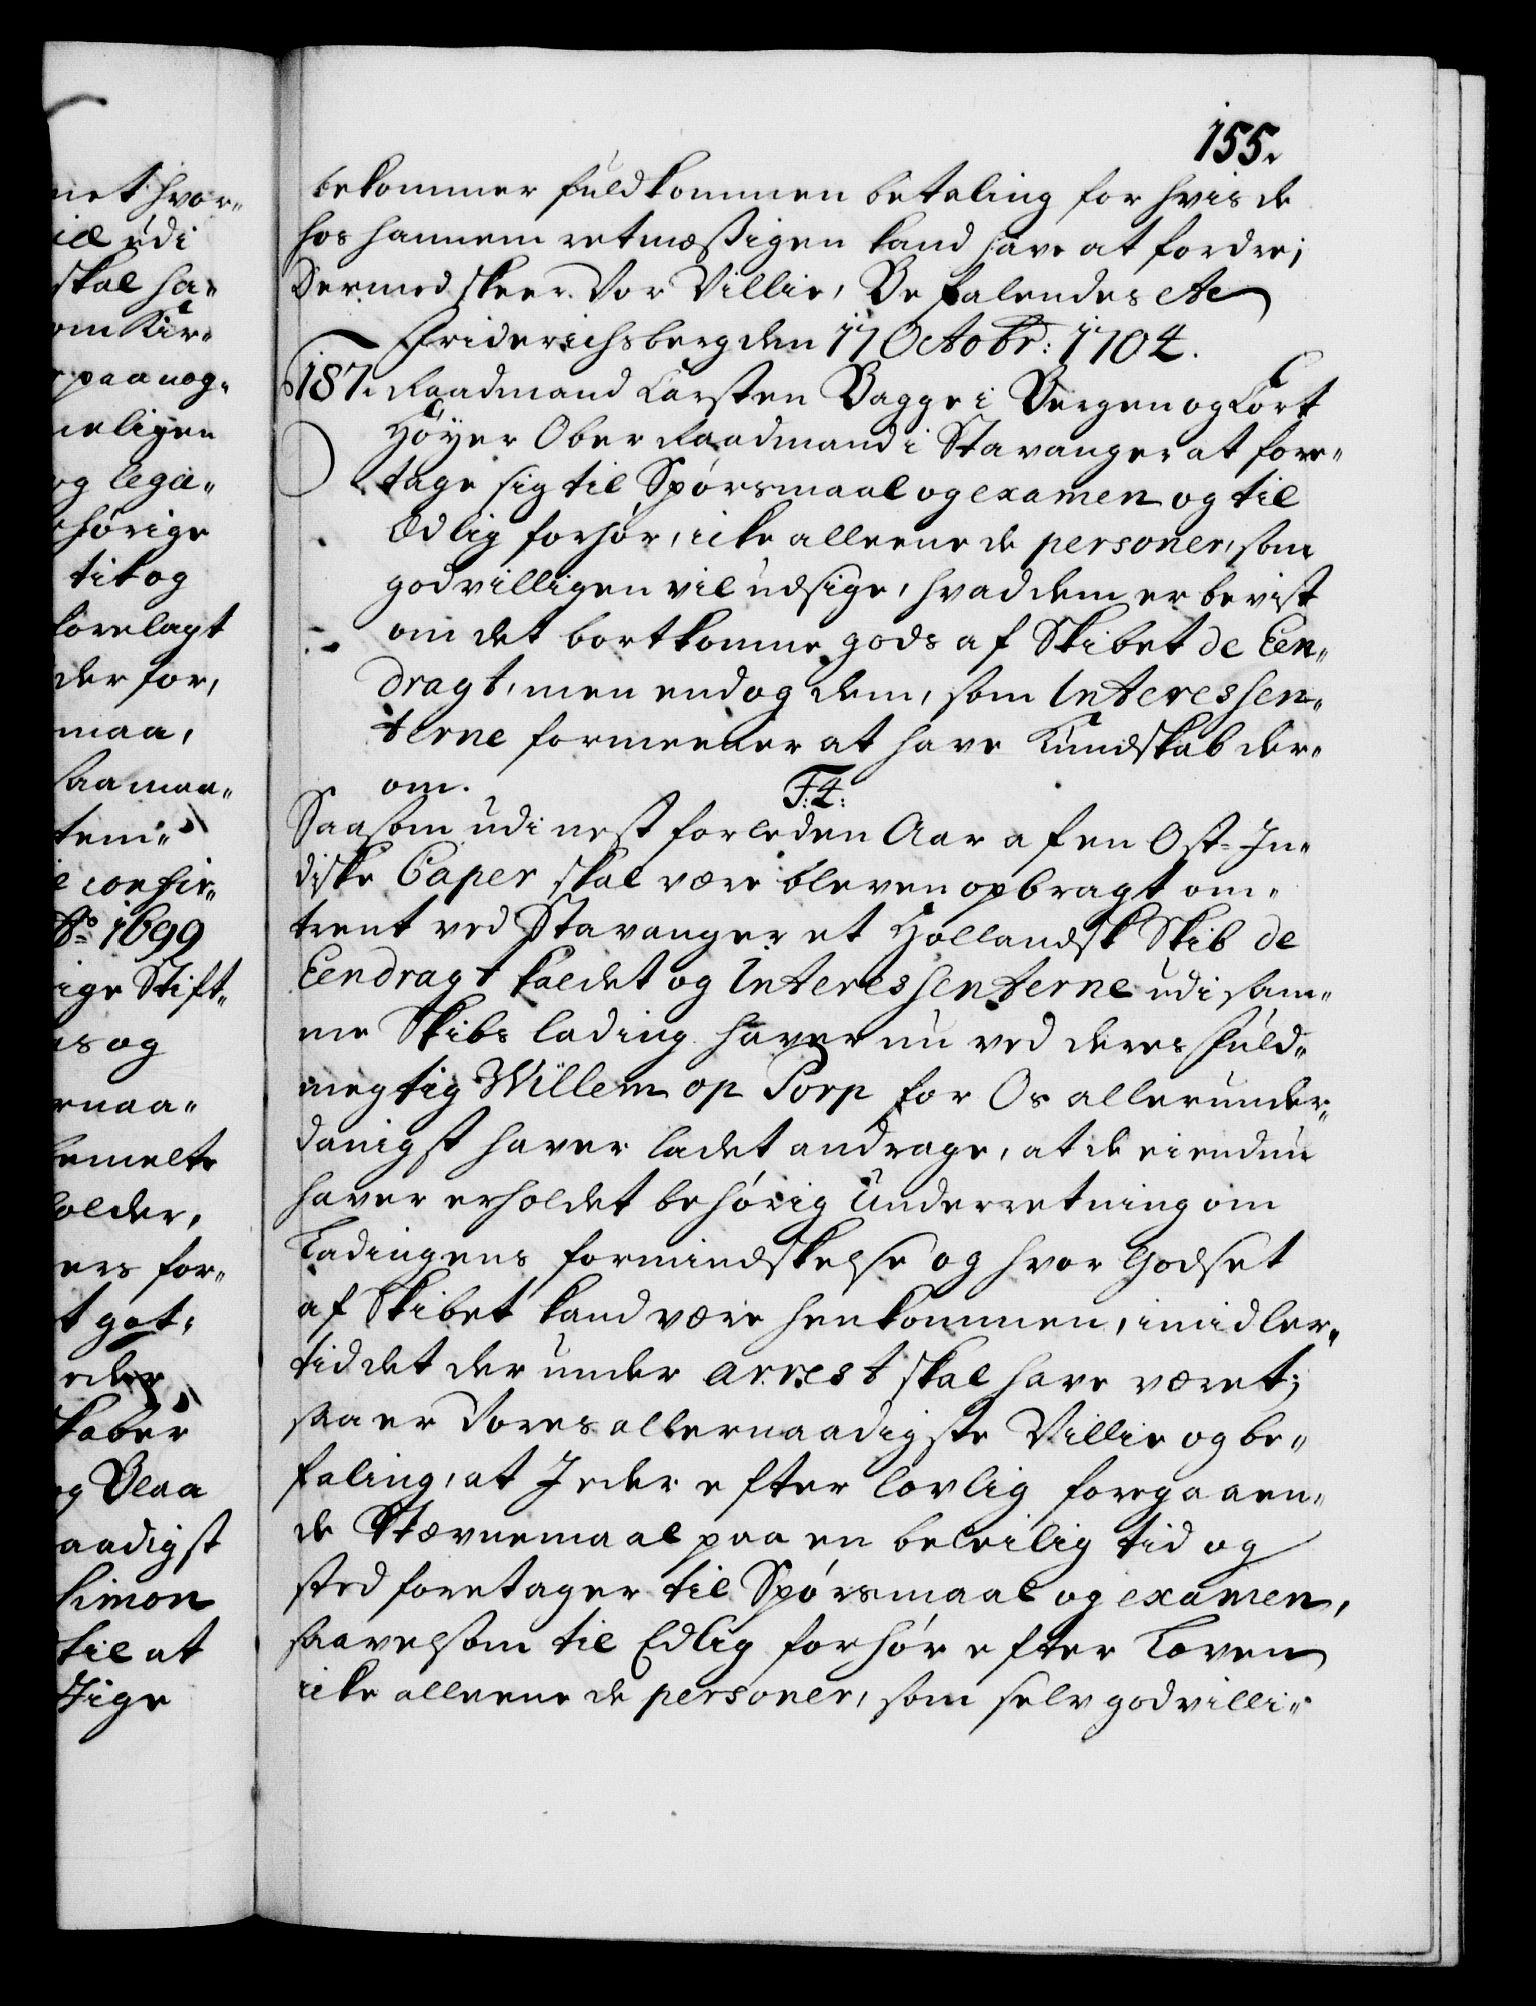 155.
bekommer fuldkommen betaling for hvis de
hos hannem retmæssigen kand have at fordre;
Dermed skeer Vor Villie, Befalendes etc
Friderichsberg den 17 Octobr: 1704.
187. Raadmand Carsten Bagge i Bergen og Cort
Höyer Ober Raadmand i Stavanger at fore„
tage sig til Spörsmaal og examen og til
Edlig forhör, icke alleene de personer, som
godvilligen vil udsige, hvad dem er bevist
om det bortkomne gods af Skibet de Een„
dragt, men endog dem, som Interessen„
terne formeener at have Kundskab der„
om.
F: 4:
Saasom udi nest forleden Aar af en Ost-In„
diske Caper skal være bleven opbragt om„
trent ved Stavanger et Hollandsk Skib de
Eendragt kaldet og Interessenterne udi sam„
me Skibs lading haver nu ved deres Fuld„
megtig Willem op Porp for Os allerunder„
danigst haver ladet andrage, at de ei endnu
haver erholdet behörig Underretning om
Ladingens formindskelse og hvor Godset
af Skibet kand være henkommen, imidler„
tid det der under arrest skal have været;
saa er Vores allernaadigste Villie og be„
faling, at I eder efter lovlig foregaaen„
de Stævnemaal paa en beleilig tid og
sted foretager til Spörsmaal og examen,
saavelsom til Edlig forhör efter Loven
icke alleene de personer, som selv godvilli„
net hvor„
udi
skal ha„
om Kir„
paa nog„
neligen
og lega„
hörige
tit og
forelagt
der for,
maa,
saa maa„
tem„
confir„
Ao 1699
ige Stift„
es og
rnaa„
bemelte
holder,
ers for„
t got„
eder
skaber
og Blaa
aadigst
Simon
til at